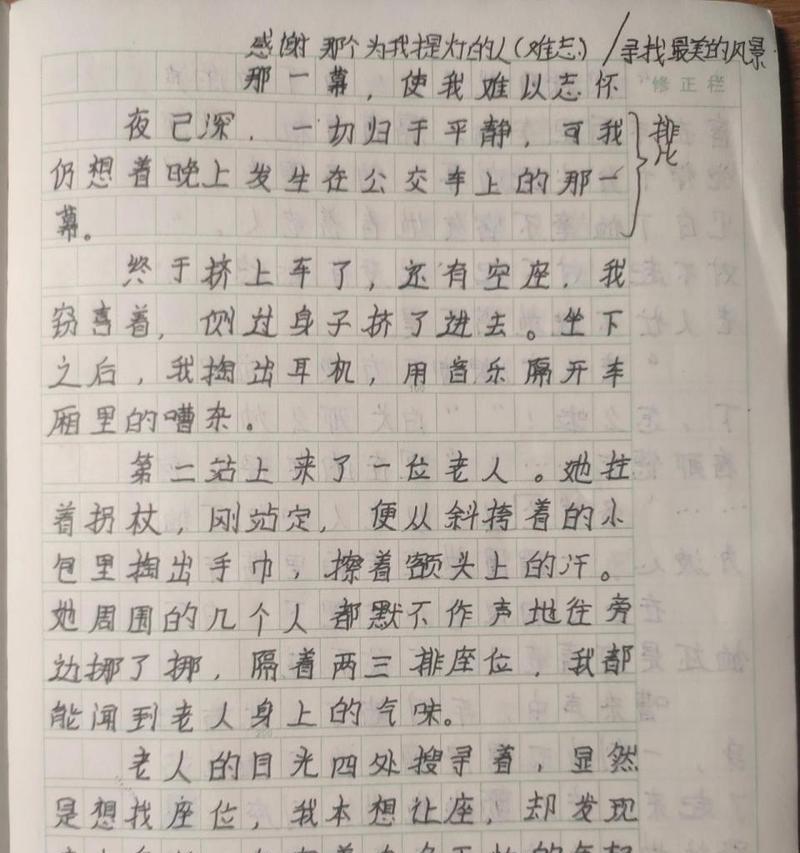 感谢那个为我提灯的人(难志)/寻找最美的风景
那一幕，使我难以志怀
修正栏
夜已深，一切归于平静，可我
排比
仍想着晚上发生在公交车上的那一
幕。
终于挤上车了，还有空座，我
窃喜着，侧过身子挤了进去。坐下
之后，我掏出耳机，用音乐隔开车
厢里的嘈杂。
第二站上来了一位老人。她拄
着拐杖，刚站定，便从斜挎着的小
包里掏出手巾，擦着额头上的汗。
她周围的几个人都默不作声地往旁
边挪了挪，隔着两三排座位，我都
能闻到老人身上的气味。
老人的目光四处搜寻着，显然
是想找座位，我本想让座，却发现